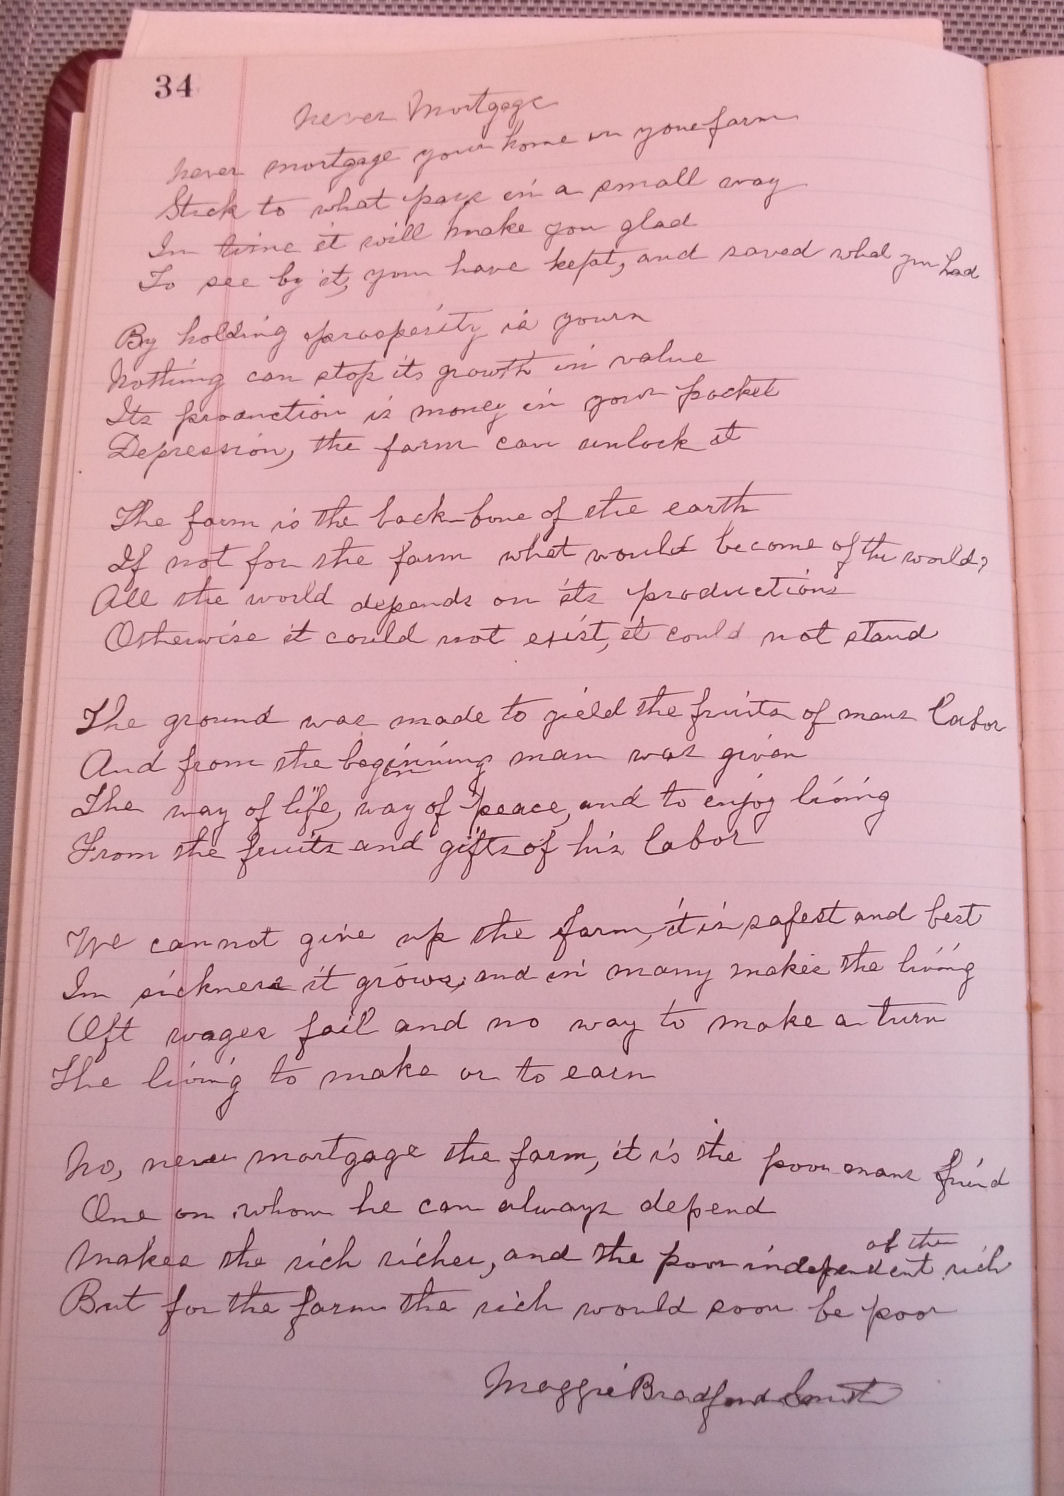 34
Never Mortgage
Never mortgage your home or your farm
Stick to what pays in a small way
In time it will make you glad
To see by it, you have kept, and saved what you had
By holding prosperity is yours
Nothing can stop its growth in value
Its production is money in your pocket
Depression, the farm can unlock it
The farm is the back-bone of the earth
If not for the farm what would become of the world?
All the world depends on its productions
Otherwise it could not exist, it could not stand
The ground was made to yield the fruits of mans labor
And from the beginning man was given
The way of life, way of peace, and to enjoy living
From the fruits and gifts of his labor
We cannot give up the farm, it is safest and best
In sickness it grows, and in many makes the living
Oft wages fail and no way to make a turn
The living to make or to earn
No, never mortgage the farm, it is the poor mans friend
One on whom he can always depend
Makes the rich richer, and the poor independent of the rich
But for the farm the rich would soon be poor
Maggie Bradford Smith